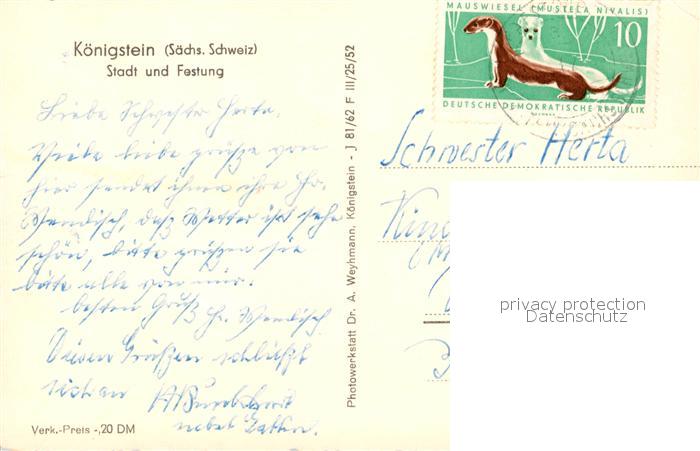 MAUSWIESEL (MUSTELA NIVALIS)
10
DEUTSCHE DEMOKRATISCHE REPUBLIK
Königstein (Sächs. Schweiz)
Stadt und Festung
Liebe Schwester Herta.
Viele liebe Grüße von
hier sendet ihnen ihre Fr.
Wendisch, das Wetter ist sehr
schön, bitte grüßen sie
bitte alle von mir.
besten Gruß Fr. Wendisch
Diesen Grüßen schließt
sich an
nebst Gatten.
Verk.-Preis -,20 DM
Photowerkstatt Dr. A. Weyhmann, Königstein - J 81/62 F III/25/52
Schwester Herta
privacy protection
Datenschutz